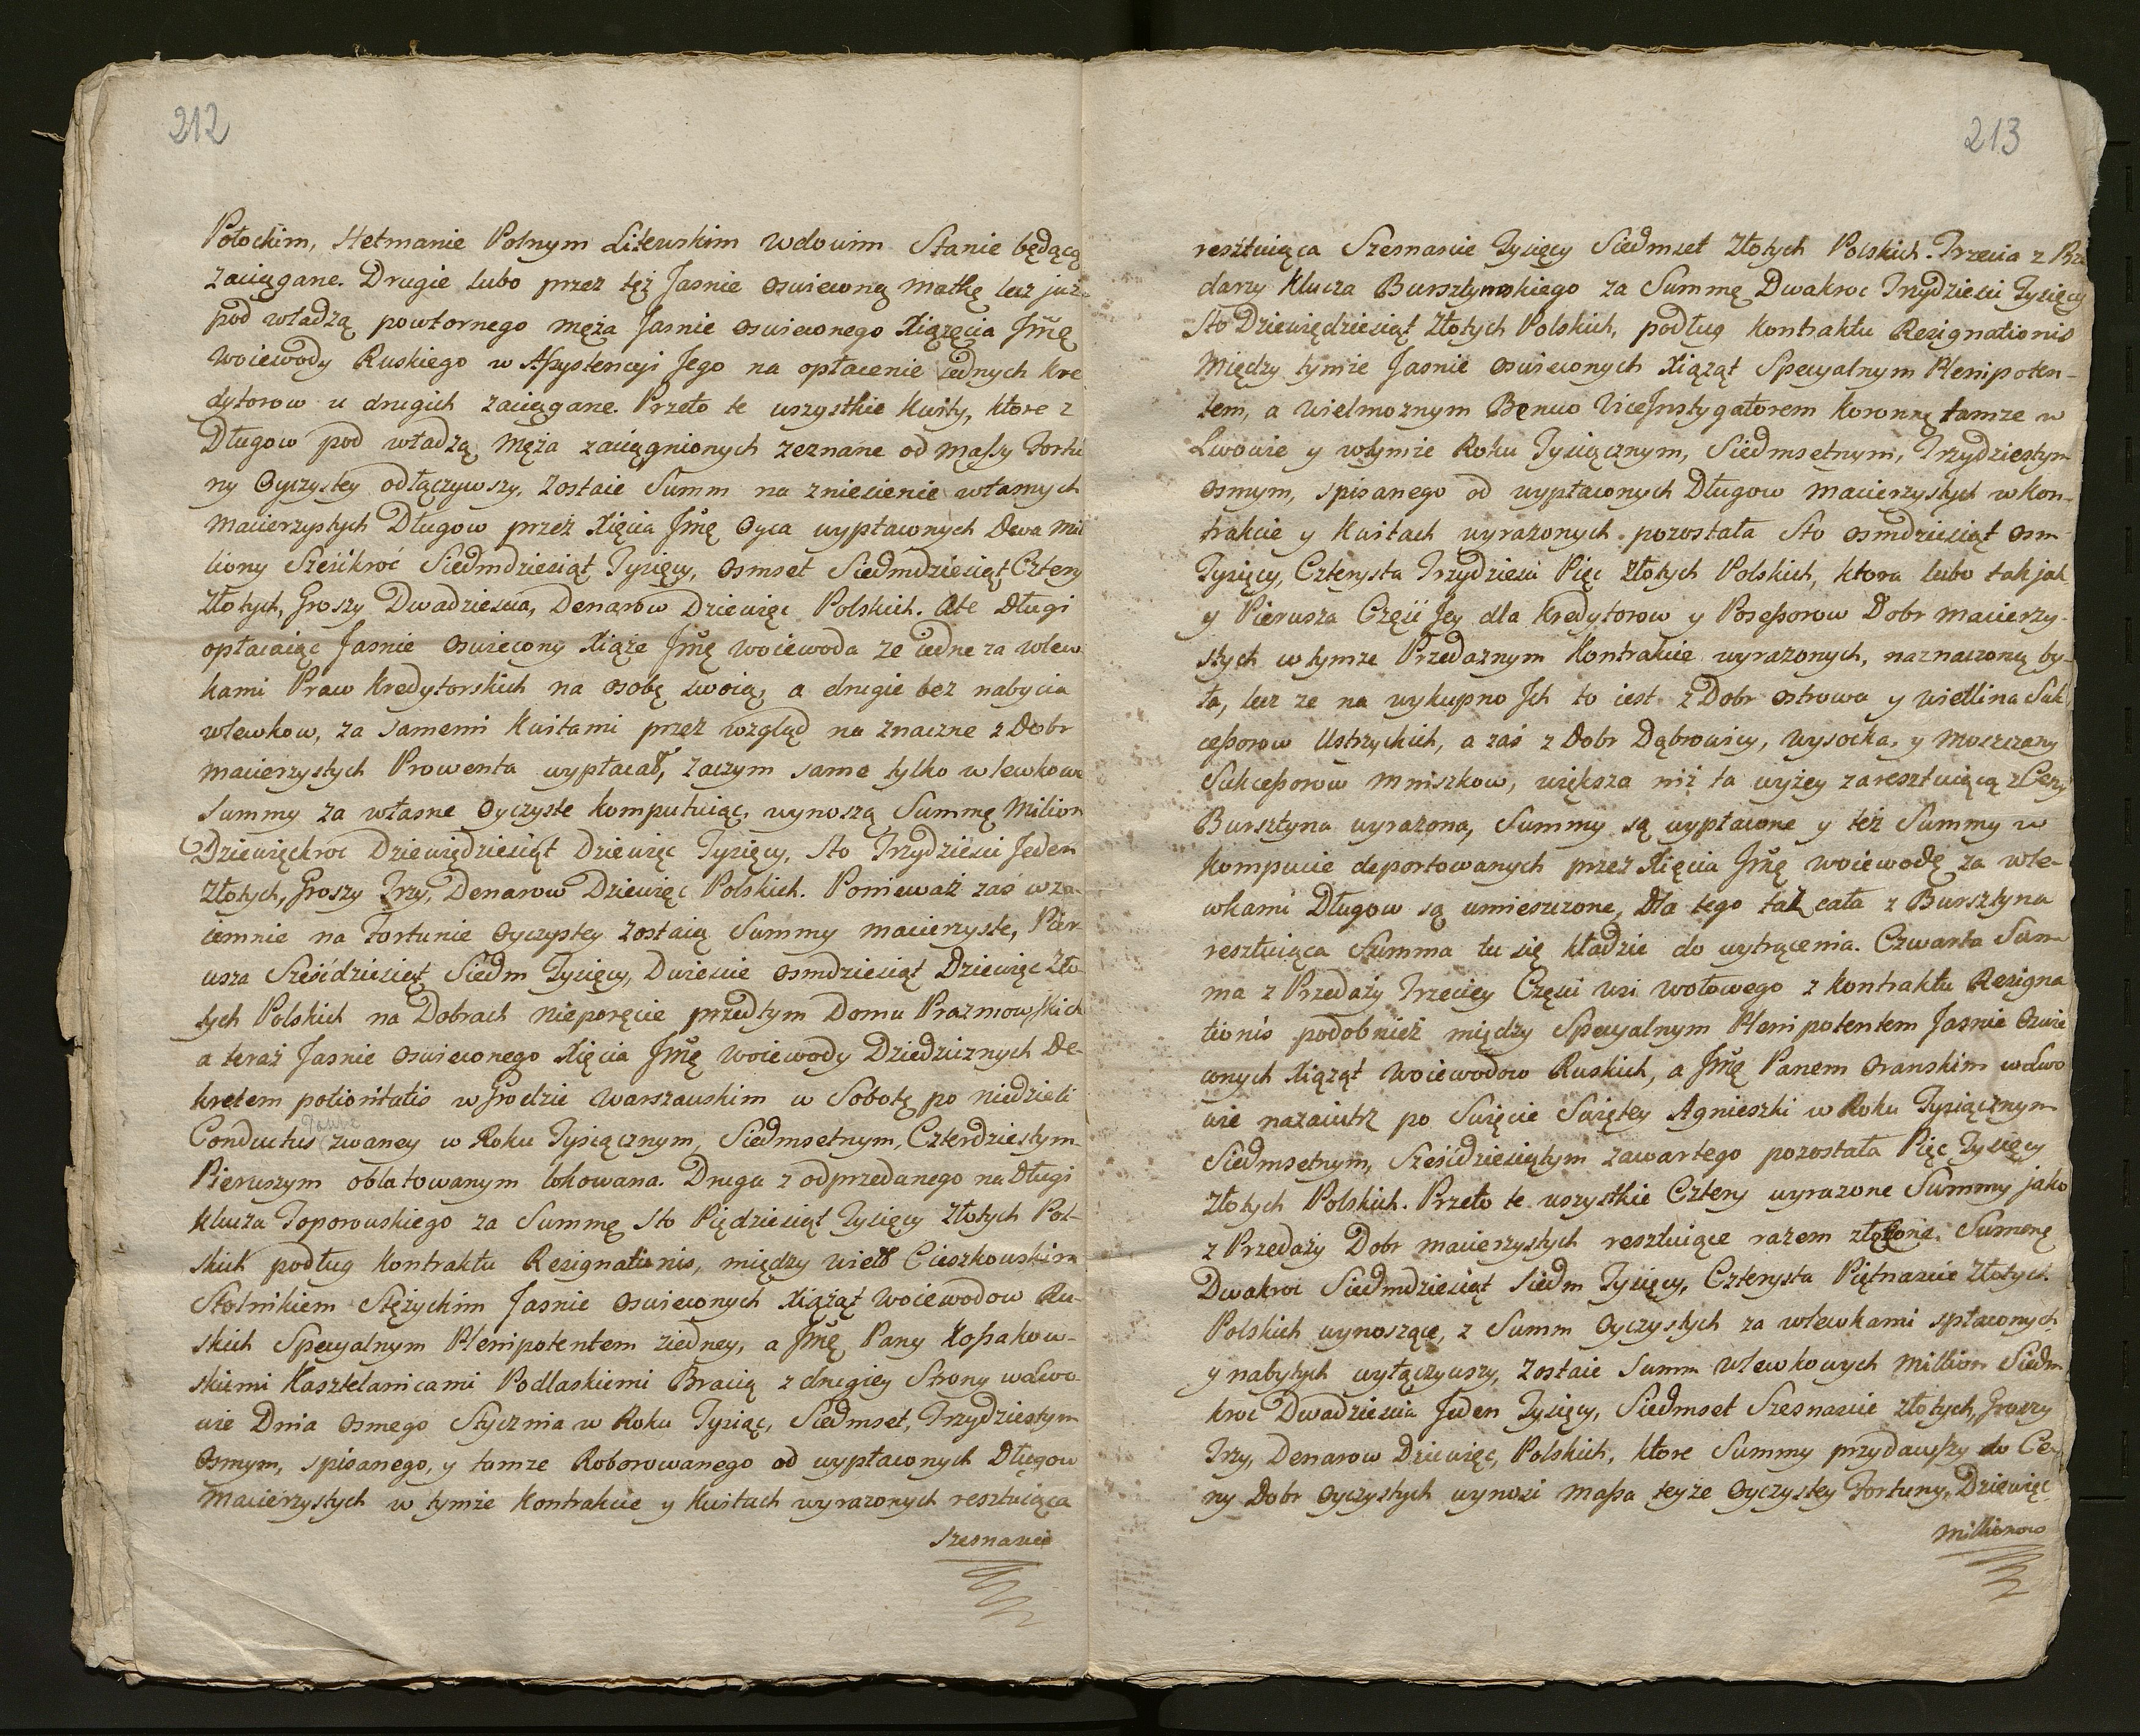 212
Połockim, Hetmanie Polnym Litewskim wdowim Stanie będącą
zaciągane. Drugie lubo przez tęż Jasnie Oswieconą Matkę lecz już
pod władzą powtornego Męża Jasnie Oswieconego Xiążęcia Jmę
Woiewody Ruskiego w Assystencyi Jego na opłacenie iednych Kre
dytorow u drugich zaciągane. Przeto te wszystkie Kwity, ktore z
Długow pod władzą Męża zaciągnionych zeznane od Massy Fortu
ny Oyczystey odłączywszy, zostaie Summ na zniesienie włamych
Macierzystych Długow przez Xięcia Jmę Oyca wypłaconych Dwa Mil
liony Sześćkroć Siedmdziesiąt Tysięcy, Osmset Siedmdziesiąt Cztery
Złotych, Groszy Dwadziescia, Denarow Dziewięc Polskich. Ale Długi
opłacaiąc Jasnie Oswiecony Xiąże Jmę Woiewoda ze iedne za wlew
kami Praw Kredytorskich na osobę swoią, a drugie bez nabycia
wlewkow, za samemi Kwitami przez wzgląd na znaczne z Dobr
Macierzystych Prowenta wypłacał, zaczym same tylko wlewkowe
Summy za własne Oyczyste komputuiąc, wynoszą Summę Milion
Dziewięckroc Dziewiędziesiąt Dziewięc Tysięcy, Sto Trzydziesci Jeden
Złotych, Groszy Trzy, Denarow Dziewięc Polskich. Ponieważ zaś wza-
iemnie na Fortunie Oyczystey zostaią Summy Macierzyste, Pier
wsza Sześćdziesiąt Siedm Tysięcy, Dwiescie Osmdziesiąt Dziewięc Zło
tych Polskich na Dobrach Nieporęcie przedtym Domu Prazmowskich
a teraz Jasnie Oswieconego Xięcia Jmę Woiewody Dziedzicznych De-
kretem potioritatis w Grodzie Warszawskim w Sobotę po Niedzieli
Conductus zwaney w Roku Tysiącznym, Siedmsetnym, Czterdziestym
Pierwszym oblatowanym lokowana. Druga z odprzedanego na Długi
Klucza Toporowskiego za Summę Sto Pięćdziesiąt Tysięcy Złotych Pol-
skich podług Kontraktu Resignationis, między Wielb Cieszkowskim
Stolnikiem Stężyckim Jasnie Oswieconych Xiążąt Woiewodow Ru-
skich Specyalnym Plenipotentem ziedney, a Jmę Pany Kossakow-
skiemi Kasztelanicami Podlaskiemi Bracią z drugiey Strony w Lwo-
wie Dnia Osmego Stycznia w Roku Tysiąc, Siedmset, Trzydziestym
Osmym, spisanego, y tamze Roborowanego od wypłaconych Długow
Macierzystych w tymże Kontrakcie y Kwitach wyrazonych resztuiąca
szesnascie
213
resztuiąca Szesnascie Tysięcy Siedmset Złotych Polskich. Trzecia z Prze
darzy Klucza Bursztynskiego za Summę Dwakroc Trzydziesci Tysięcy
Sto Dziewiędziesiąt Złotych Polskich, podług Kontraktu Resignationis
Między tymże Jasnie Oswieconych Xiążąt Specyalnym Plenipoten-
tem, a Wielmoznym Benuo ViceInstygatorem Koronnę tamze w
Lwowie y wtymże Roku Tysiącznym, Siedmsetnym, Trzydziestym
Osmym, spisanego od wypłaconych Długow Macierzystych w Kon-
trakcie y Kwitach wyrazonych pozostała Sto Osmdziesiąt Osm
Tysięcy, Czterysta Trzydziesci Pięc Złotych Polskich, ktora lubo tak jak
y Pierwsza Część Jey dla Kredytorow y Possessorow Dobr Macierzy-
stych w tymze Przedaznym Kontrakcie wyrazonych, naznaczoną by-
ła, lecz ze na wykupno Jch to iest z Dobr Ostrowa y Wietlina Suk
cessorow Ustrzyckich, a zaś z Dobr Dąbrowicy, Wysocka, y Moszczany
Sukcessorow Mniszkow, większa niż ta wyżey zaresztuiącą z Ceny
Bursztyna wyrazona, Summy są wypłacone y też Summy w
Kompucie deportowanych przez Xięcia Jmę Woiewodę za wle-
wkami Długow są umieszczone, Dla tego taż cała z Bursztyna
resztuiąca Summa tu się kładzie do wytrącenia. Czwarta Sum
ma z Przedaży Trzeciey Części wsi Wołowego z Kontraktu Resigna
tionis podobnież między Specyalnym Plenipotentem Jasnie Oswie
conych Xiążąt Woiewodow Ruskich, a Jmę Panem Oranskim w Lwo
wie nazaiutrz po Swięcie Swiętey Agnieszki w Roku Tysiącznym
Siedmsetnym, Sześćdziesiątym zawartego pozostała Pięc Tysięcy
Złotych Polskich. Przeto te wszystkie Cztery wyrazone Summy jako
z Przedaży Dobr Macierzystych resztuiące razem złożone, Summę
Dwakroc Siedmdziesiąt Siedm Tysięcy, Czterysta Piętnascie Złotych
Polskich wynoszące, z Summ Oyczystych za wlewkami spłaconych
y nabytych wyłączywszy, zostaie Summ wlewkowych Million Siedm
kroc Dwadziescia Jeden Tysięcy, Siedmset Szesnascie złotych, Groszy
Trzy, Denarow Dziewięc, Polskich, ktore Summy przydawszy do Ce-
ny Dobr Oyczystych wynosi Massa teyże Oyczystey Fortuny, Dziewięc
Millionow